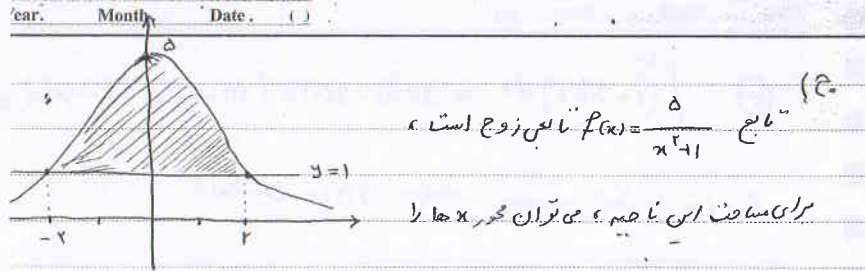 Year. Month. Date. ( )
ج)
تابع f(x) = ۵/(x^۲+1) تابعی زوج است،
برای مساحت این ناحیه، می توان محور x ها را
۵
y = 1
-۲ ۲